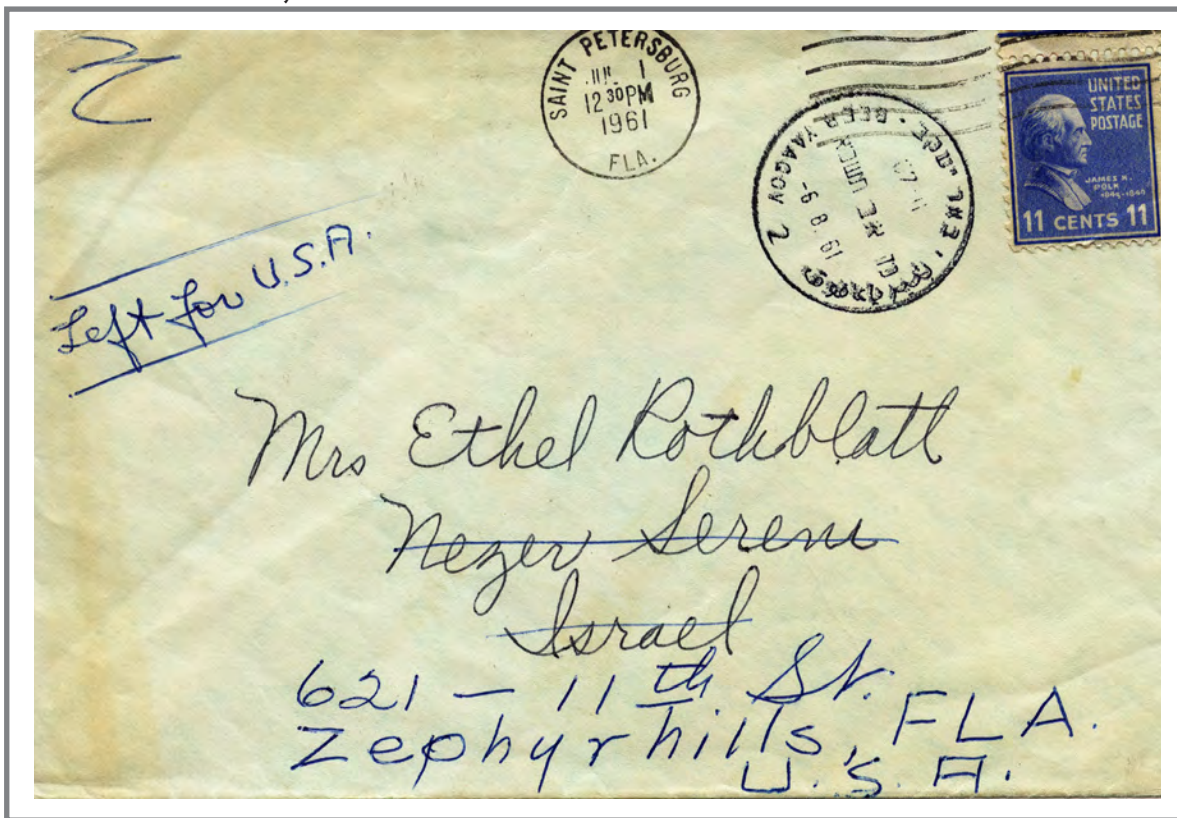 SAINT PETERSBURG
1
12 30 PM
1961
FLA.
BEER YAAQOV 2
באר יעקב
כד אב תשכא
-6.8.61
UNITED
STATES
POSTAGE
JAMES K.
POLK
1845-1849
11 CENTS 11
Left for U.S.A.
Mrs Ethel Rothblatt
Nezer Sereni
Israel
621 - 11th St.
Zephyrhills, FLA.
U.S.A.